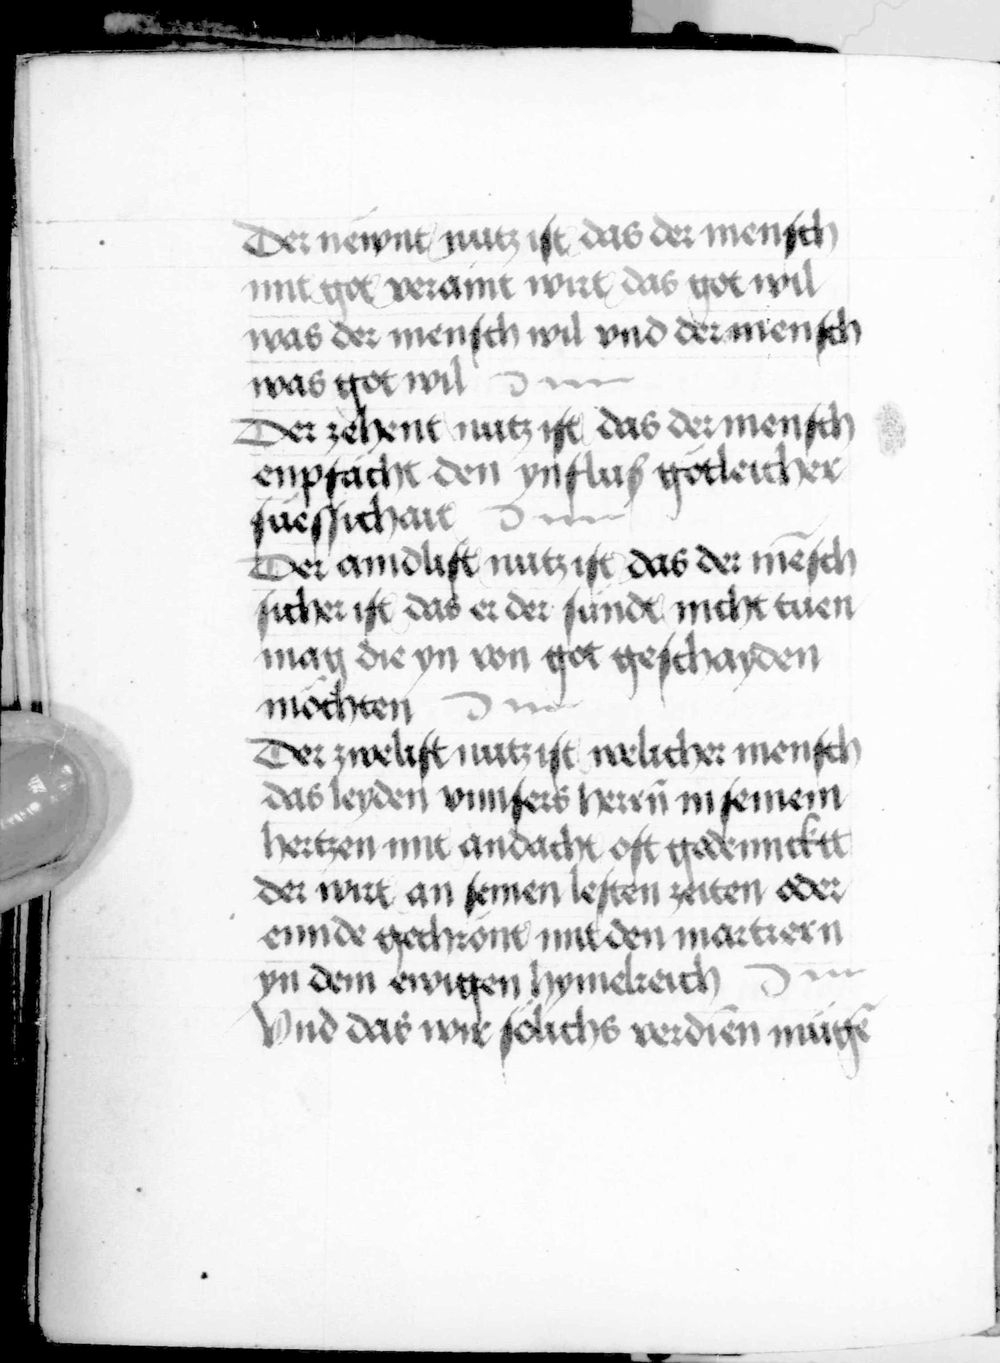 Der newnt nutz ist das der mensch
mit got veraint wirt das got wil
was der mensch wil vnd der mensch
was got wil
Der zehent nutz ist das der mensch
enpfächt den ynfluß götleicher
süessichait
Der aindlift nutz ist das der mēsch
sicher ist das er der sündt nicht tuen
mag die yn von got geschayden
möchten
Der zwelift nutz ist welicher mensch
das leyden vnnsers herrn̄ in seinem
hertzen mit andacht oft gedenncktt
der wirt an seinen lesten zeiten oder
ennde gechrönt mit den martrern
yn dem ewigen hymelreich
Vnd das wir sölichs verdien̄ mügē